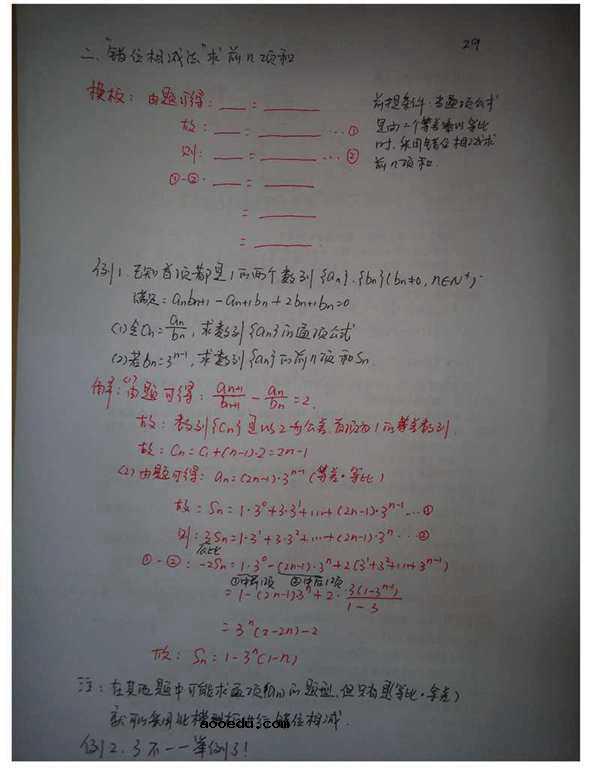 29
二、"错位相减法"求前n项和
模板: 由题可得: ___ = ______
故: ___ = ______ …①
则: ___ = ______ …②
①-②: ___ = ______
= ______
= ______.
前提条件:当通项公式
是由一个等差乘以等比
时,采用错位相减求
前n项和.
例1. 已知首项都是1的两个数列{an}.{bn}(bn≠0, n∈N*).
满足: anbn+1 - an+1bn + 2bn+1bn=0
(1)令Cn=an/bn, 求数列{an}的通项公式
(2)若bn=3^(n-1), 求数列{an}的前n项和Sn.
解:(1)由题可得: an+1/bn+1 - an/bn = 2.
故: 数列{Cn}是以2为公差,首项为1的等差数列.
故: Cn = C1+(n-1)·2 = 2n-1
(2)由题可得: an=(2n-1)·3^(n-1) (等差·等比)
故: Sn = 1·3^0+3·3^1+…+(2n-1)·3^(n-1) …①
则: 3Sn = 1·3^1+3·3^2+…+(2n-1)·3^n …②
公比
①-②: -2Sn = 1·3^0-(2n-1)·3^n+2(3^1+3^2+…+3^(n-1))
①中前1项 ②中后1项
= 1-(2n-1)3^n+2·3(1-3^(n-1))/1-3
= 3^n(2-2n)-2
故: Sn = 1-3^n(1-n)
注: 在其他题中可能求通项(an)的题型,但只有是(等比·等差)
就可以采用此模型板进行错位相减.
aooedu.com
例2、3不一一举例了!